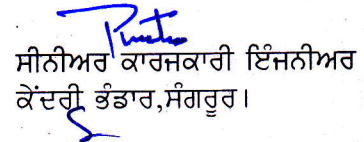 ਸੀਨੀਅਰ ਕਾਰਜਕਾਰੀ ਇੰਜਨੀਅਰ
ਕੇਂਦਰੀ ਭੰਡਾਰ,ਸੰਗਰੂਰ।